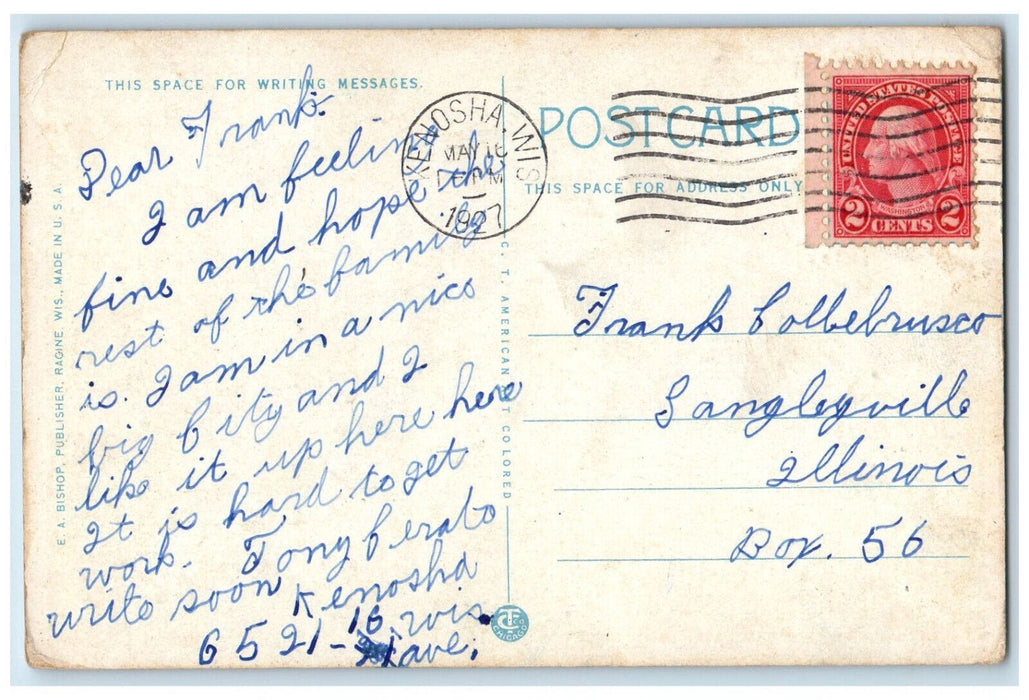 THIS SPACE FOR WRITING MESSAGES.
Dear Frank:
I am feeling
fine and hope the
rest of the family
is. I am in a nice
big City and I
like it up here here
It is hard to get
work. Tony Cerato
write soon Kenosha
Wis.
6521-16 ave.
E. A. BISHOP, PUBLISHER, RACINE, WIS., MADE IN U. S. A.
C. T. AMERICAN ART COLORED
KENOSHA, WIS
MAY 16
PM
1927
POST CARD
THIS SPACE FOR ADDRESS ONLY
UNITED STATES POSTAGE
WASHINGTON
2 CENTS 2
Frank Collebrusco
Langleyville
Illinois
Box. 56
CT CO
CHICAGO